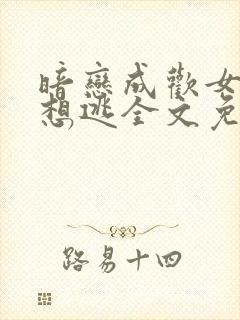 暗戀成歡女
想逃全文免
路易十四